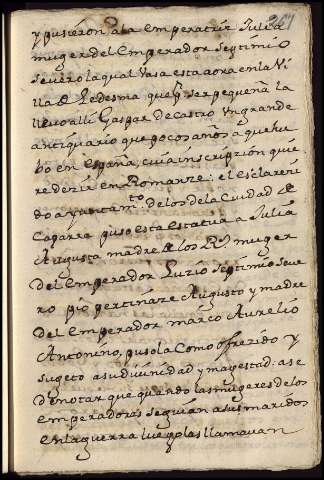 267
y pusieron a la emperatriz Julia
muger del emperador septimio
severo la qual vasa esta aora en la Vi
lla de Ledesma que por ser pequeña la
llevo alli Gaspar de castro un grande
antiquario que pocos años a que hu
bo en españa, cuia inscripzion quie
re dezir en Romanze: el esclareri
do ayuntamto. de los de la Ciudad de
Caparra puso esta estatua a Julia
Augusta madre de los Rs. muger
del emperador Luzio septimio seve
ro pio pertinaze Augusto y madre
del emperador marco Aurelio
Antonino, pusola como ofrezido y
sugeto a su divinidad y magestad: ase
de notar que quando las mugeres de los
emperadores seguian a sus maridos
en la guerra luego las llamavan